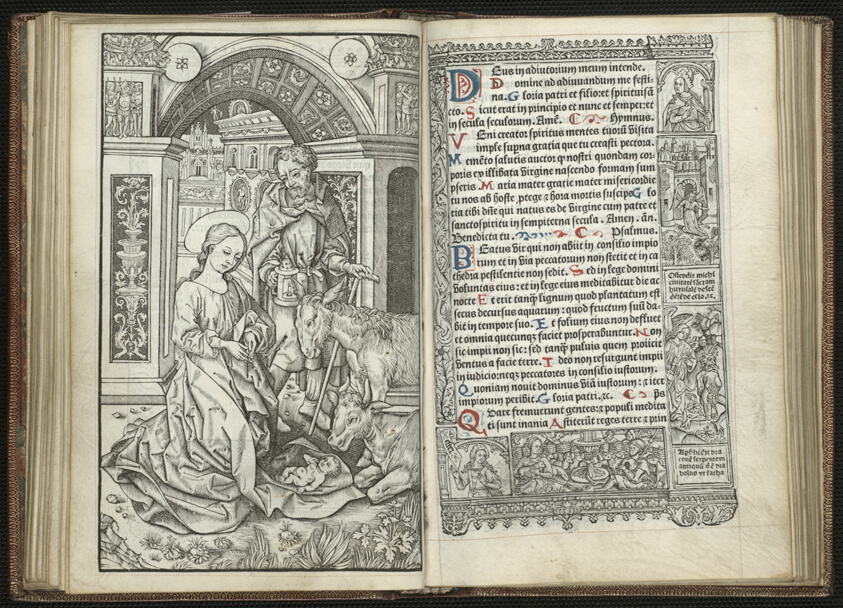 Deus in adiutorium meum intende.
Domine ad adiuuandum me festi
na. Gloria patri et filio et spiritui sā
cto. Sicut erat in principio et nunc et semper: et
in secula seculorum. Amē. Hymnus.
Veni creator spiritus mentes tuorū visita
imple supna gratia que tu creasti pectora.
Memēto salutis auctor ꝙ nostri quondam cor-
poris ex illibata virgine nascendo formam sum
pseris. Maria mater gratie mater misericordie
tu nos ab hoste ptege ⁊ hora mortis suscipe. Glo
ria tibi dñe qui natus es de virgine cum patre et
sancto spiritu in sempiterna secula. Amen. añ.
Benedicta tu. Psalmus.
Beatus vir qui non abiit in consilio impio
rum et in via peccatorum non stetit et in ca
thedra pestilentie non sedit. Sed in lege domini
voluntas eius: et in lege eius meditabitur die ac
nocte Et erit tanqȝ lignum quod plantatum est
secus decursus aquarum: quod fructum suū da-
bit in tempore suo. Et folium eius non defluet
et omnia quecunqȝ faciet prosperabuntur. Non
sic impii non sic: sed tanqȝ puluis quem proiicit
ventus a facie terre. Ideo non resurgunt impii
in iudicio: neqȝ peccatores in consilio iustorum.
Quoniam nouit dominus viā iustorum: ⁊ iter
impiorum peribit. Gloria patri. ⁊c. ps
Quare fremuerunt gentes: ⁊ populi medita
ti sunt inania Astiterūt reges terre ⁊ prin
Ostendit michi
ciuitatē sāctam
hierusalē descē
dētē de celo. ⁊c.
serpentem
antiquū
bolus